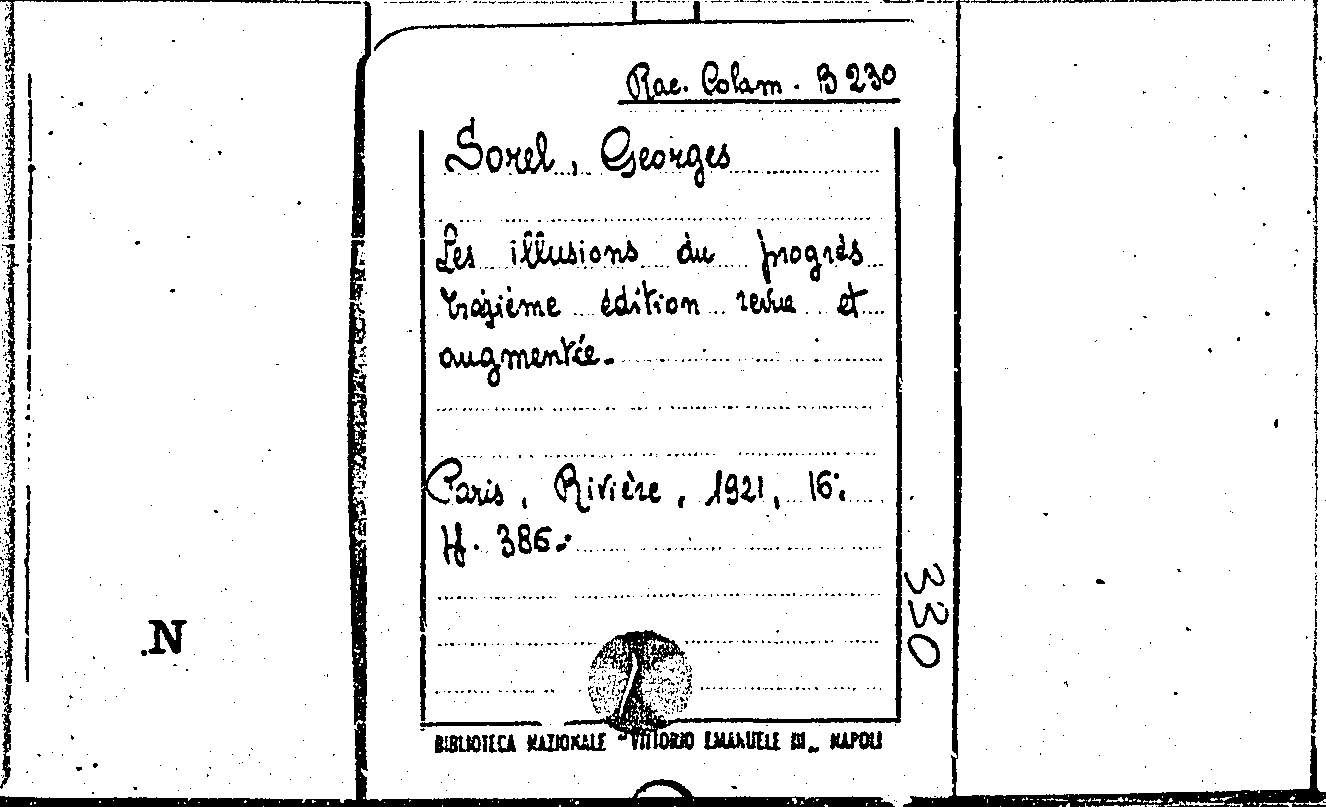 Rac. Colam. B 230
Sorel, Georges
Les illusions du progrès
troisième édition revue et
augmentée.
Paris, Rivière, 1921, 16°.
pp. 386.
330
.N
BIBLIOTECA NAZIONALE "VITTORIO EMANUELE III" NAPOLI